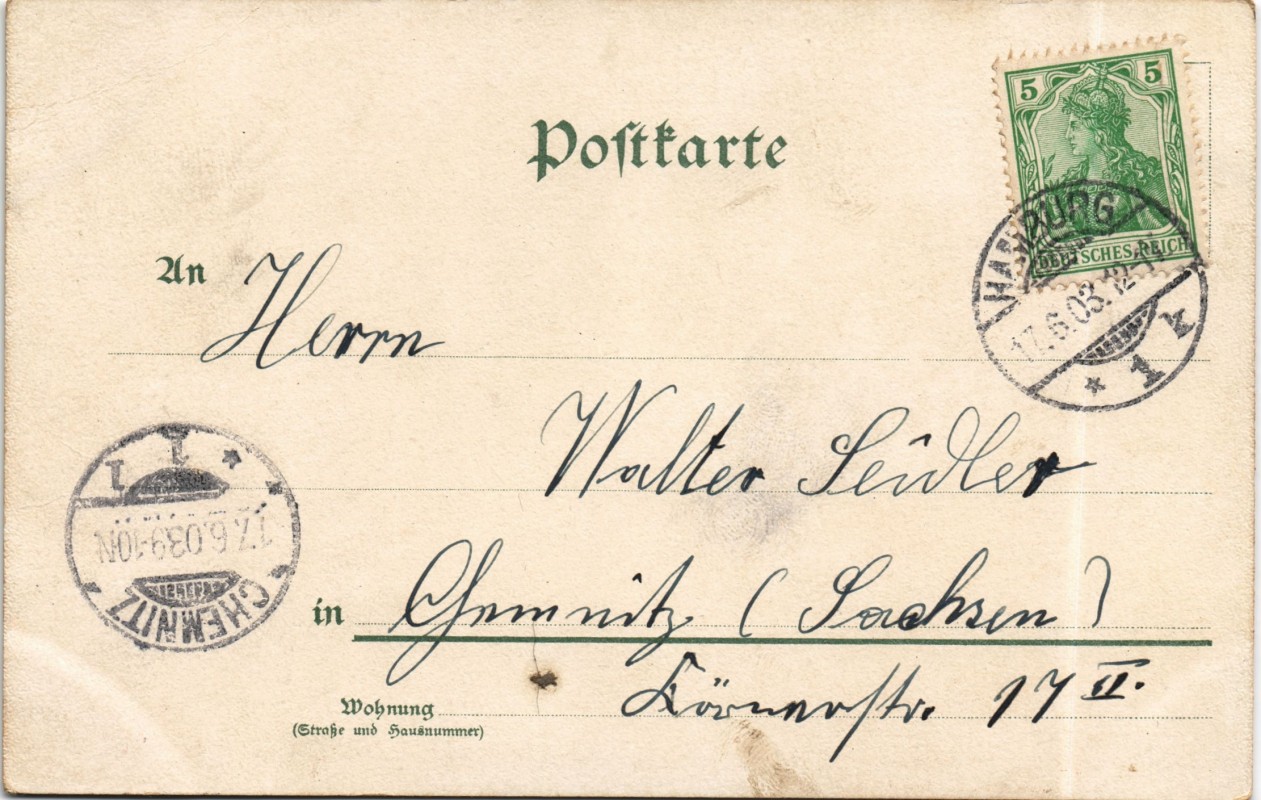 Postkarte
5 5
DEUTSCHES REICH
HAMBURG
17.6.03. 12-
* 1 k
An Herrn
Walter Seidler
in Chemnitz (Sachsen)
Körnerstr. 17 II.
Wohnung
(Straße und Hausnummer)
CHEMNITZ
17.6.03 9-10N
* 1 1 *